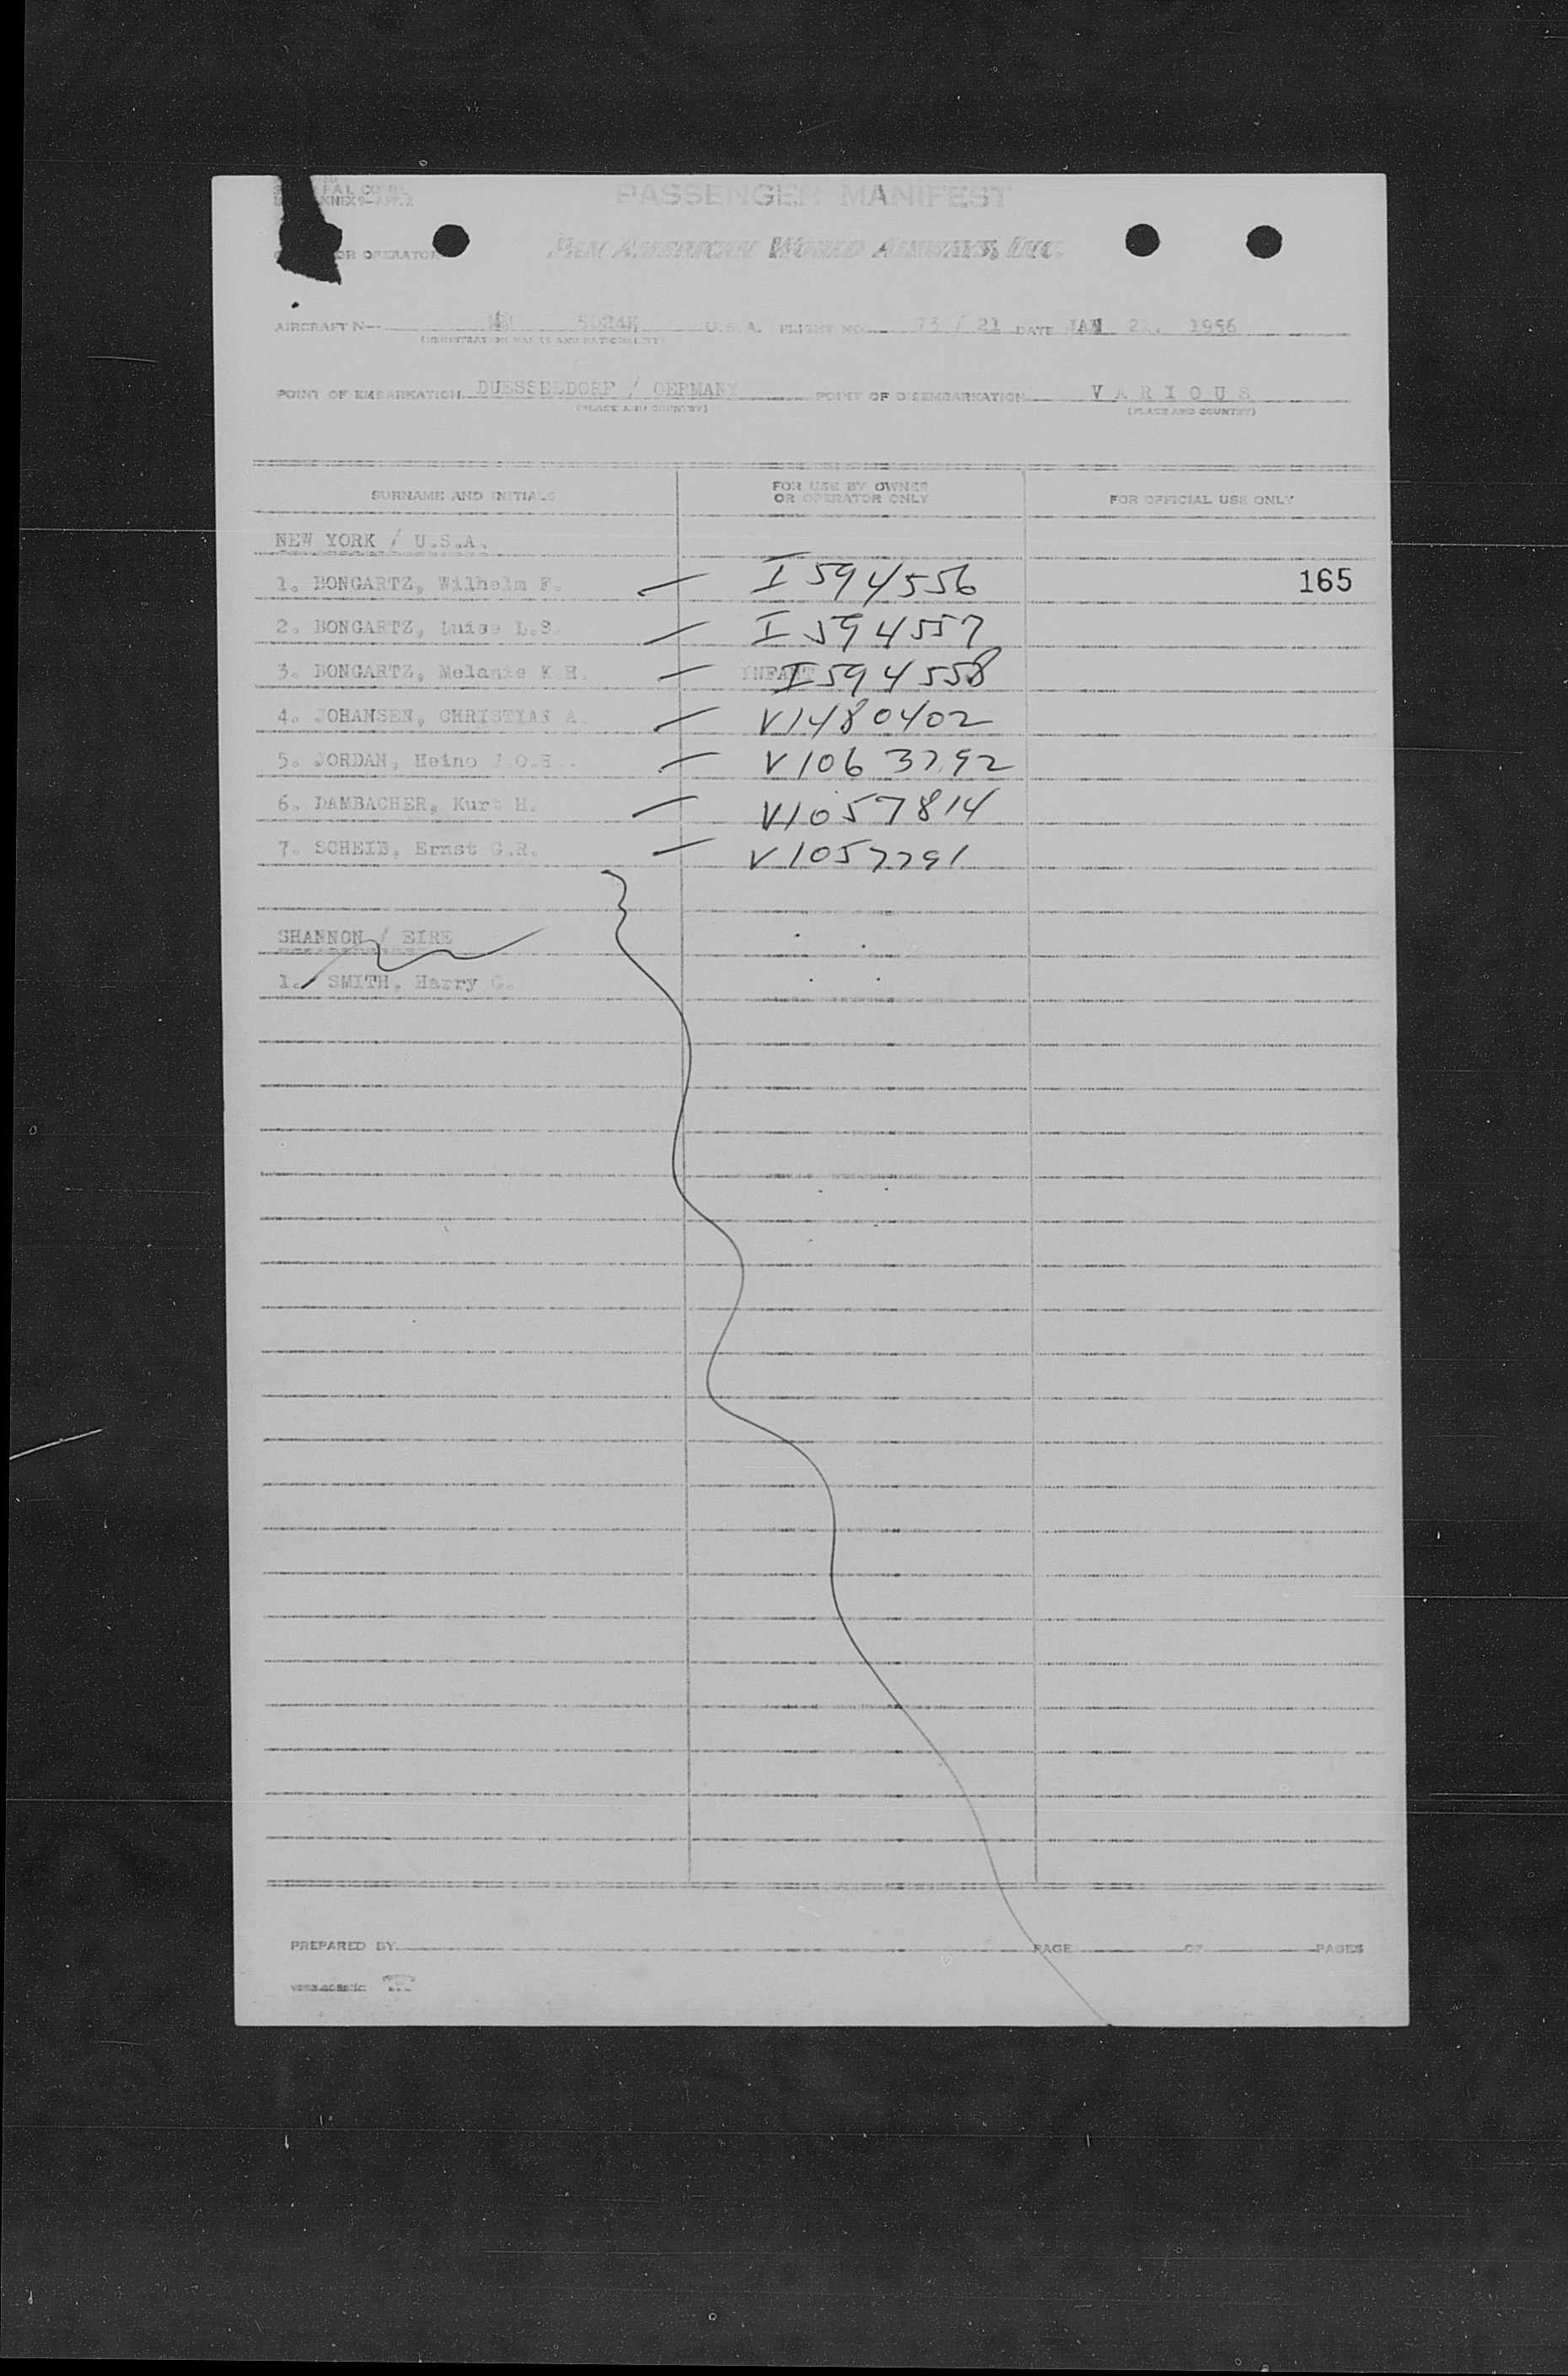 PASSENGER MANIFEST
OR OPERATOR PAN AMERICAN WORLD AIRWAYS, INC.
AIRCRAFT N U.S.A. FLIGHT NO. 73 / 21 DATE JAN 1956
(REGISTRATION MARKS AND NATIONALITY)
POINT OF EMBARKATION DUESSELDORF / GERMANY POINT OF DISEMBARKATION V A R I O U S
(PLACE AND COUNTRY) (PLACE AND COUNTRY)
SURNAME AND INITIALS FOR USE BY OWNER OR OPERATOR ONLY FOR OFFICIAL USE ONLY
NEW YORK / U.S.A.
1. BONGARTZ, Wilhelm F. — I 594556 165
2. BONGARTZ, Luise L.S. — I 594557
3. BONGARTZ, Melanie K.H. — INFANT I594558
4. JOHANSEN, CHRISTIAN A. — V1480402
5. JORDAN, Heino J.O.H. — V1063792
6. DAMBACHER, Kurt H. — V1057814
7. SCHEIB, Ernst G.R. — V1057791
SHANNON / EIRE
1. SMITH, Harry G.
PREPARED BY PAGE OF PAGES